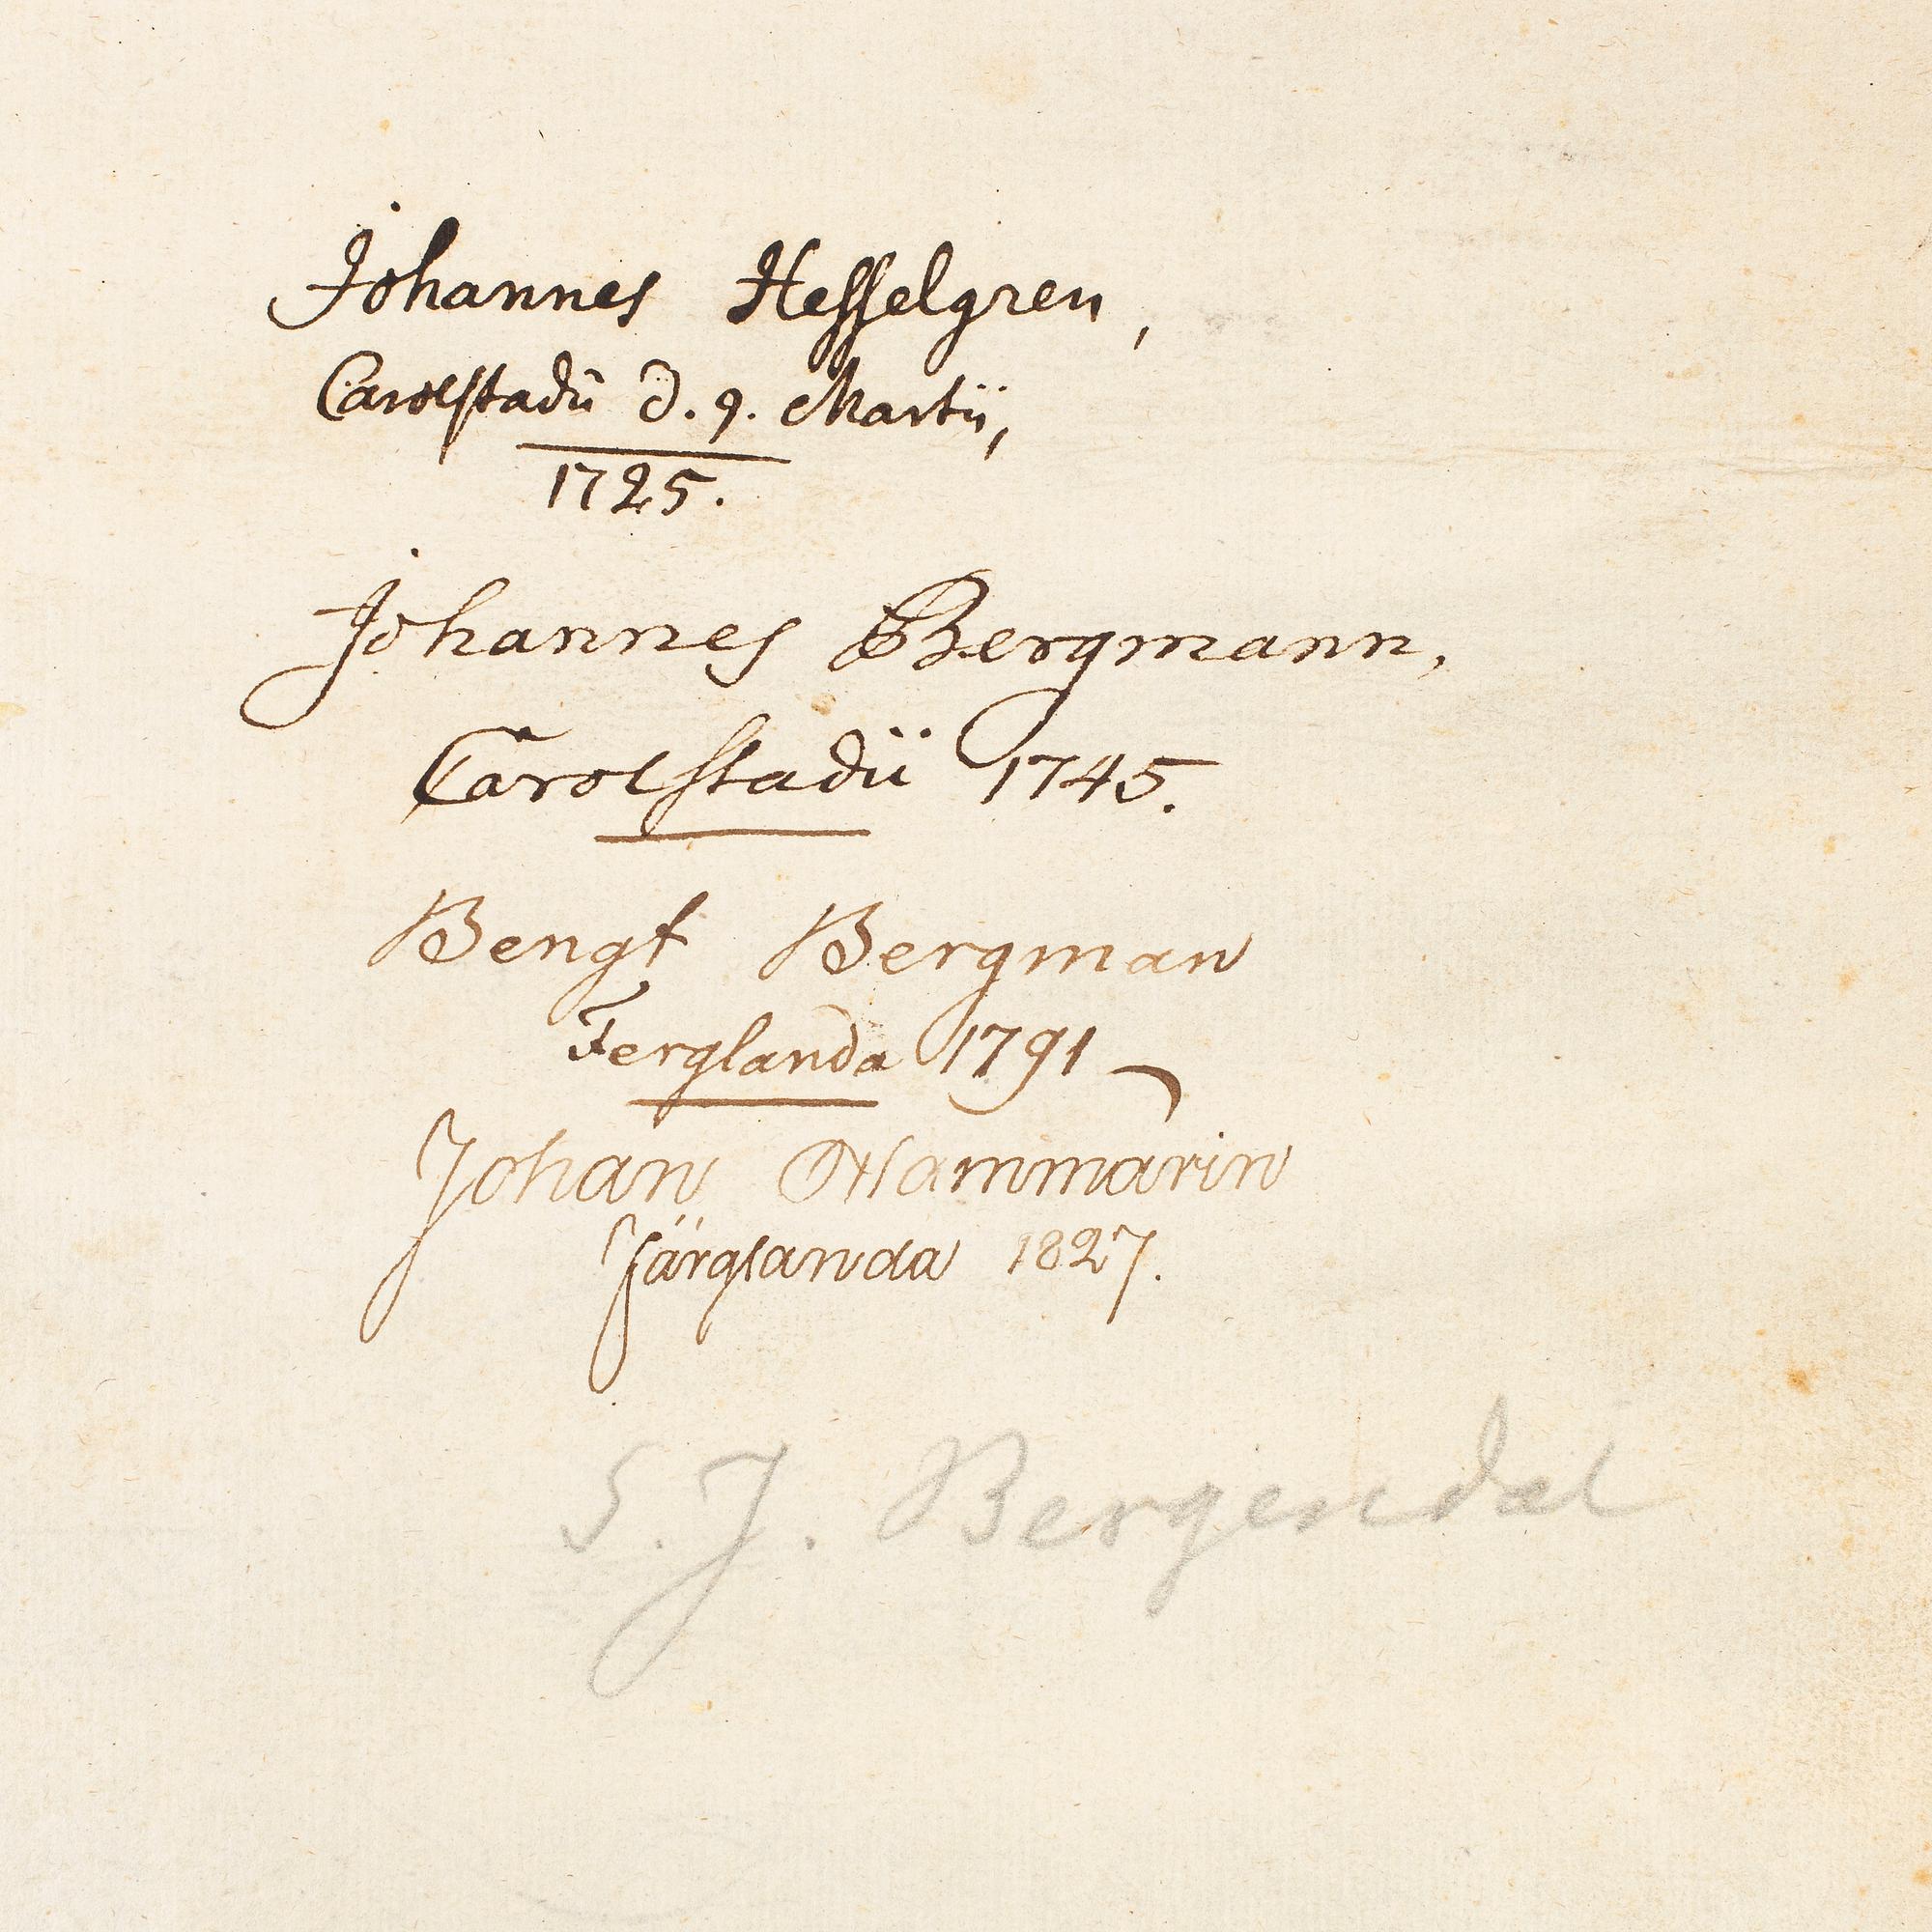 Johannes Hesselgren,
Carolstadii d. 9. Martii,
1725.
Johannes Bergmann,
Carolstadii 1745.
Bengt Bergman
Ferglanda 1791
Johan Hammarin
Färglanda 1827.
S. J. Bergendal